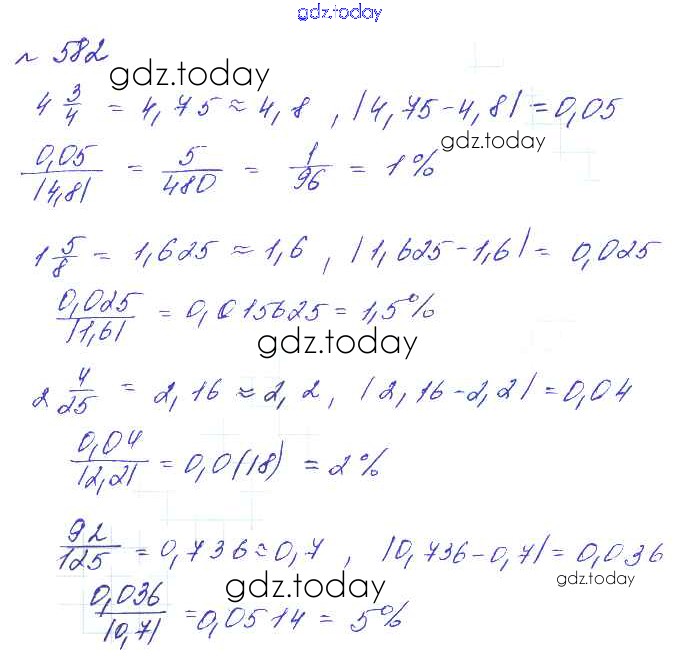 gdz.today
№ 582
gdz.today
4 3/4 = 4,75 ≈ 4,8 , |4,75-4,8| = 0,05
gdz.today
0,05/|4,8| = 5/480 = 1/96 = 1%
1 5/8 = 1,625 ≈ 1,6 , |1,625-1,6| = 0,025
0,025/|1,6| = 0,015625 = 1,5%
gdz.today
2 4/25 = 2,16 ≈ 2,2 , |2,16-2,2| = 0,04
0,04/|2,2| = 0,0(18) = 2%
92/125 = 0,736 ≈ 0,7 , |0,736-0,7| = 0,036
gdz.today
gdz.today
0,036/|0,7| = 0,0514 = 5%